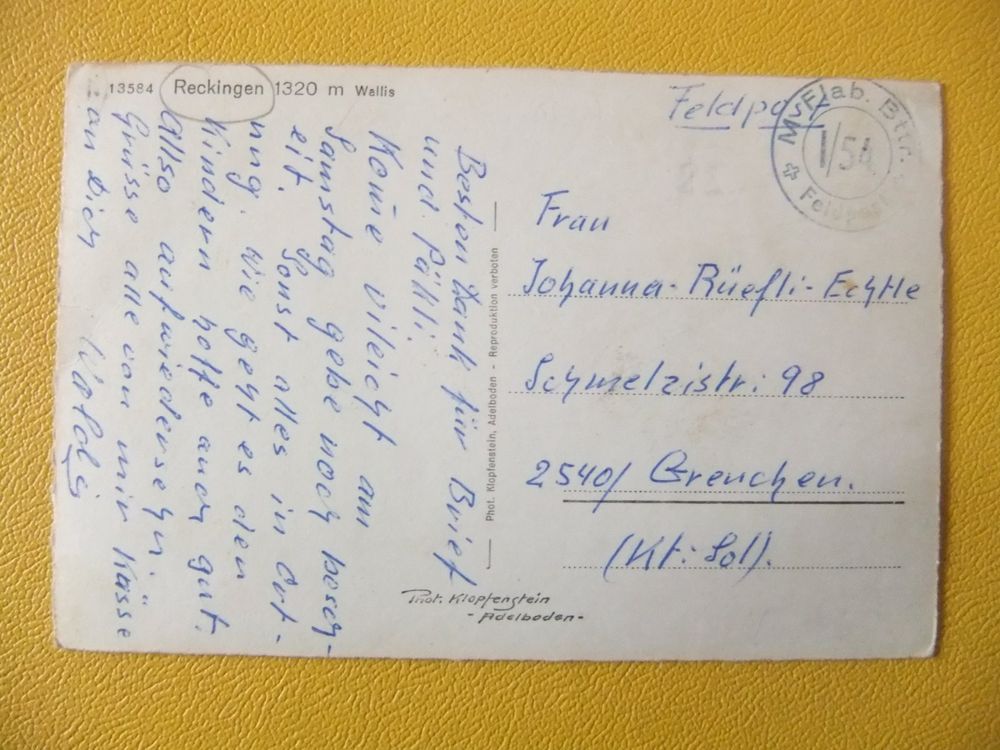 13584 Reckingen 1320 m Wallis
Feldpost
Flab. Bttr.
I/54
Feldpost
Besten Dank für Brief
und Pälli.
Kome vileicht am
Samstag gebe noch besch-
eit. Sonst alles in Ort-
nung. Wie geht es den
Kindern hoffe auch gut.
Allso aufwiedersehn
Grüsse alle von mir Küsse
an Dich
Phot. Klopfenstein, Adelboden - Reproduktion verboten
Phot. Klopfenstein
- Adelboden -
Frau
Johanna-Rüefli-Echtle
Schmelzistr: 98
2540/ Grenchen.
(Kt: Sol).